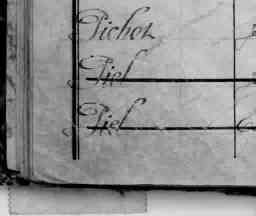 Pichon
Piel
Piel